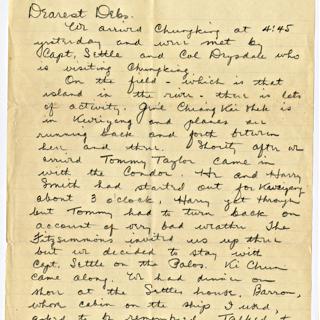 Dearest Debs.
We arrived Chungking at 4:45
yesterday and were met by
Capt. Settle and Col Drysdale who
is visiting Chungking.
On the field - which is that
island in the river - there is lots
of activity. Gml Chiang Kai Shek is
in Kweiyeng and planes are
running back and forth between
here and there. Shortly after we
arrived Tommy Taylor came in
with the Condor. He and Harry
Smith had started out for Kweiyeng
about 3 o'clock, Harry got through
but Tommy had to turn back on
account of very bad weather. The
Fitzsimmons invited us up there
but we decided to stay with
Capt. Settle on the Palos. Ki Chun
came along. We had dinner on
shore at the Settles house. Barron,
whose cabin on the ship I used,
asked to be remembered. Talked